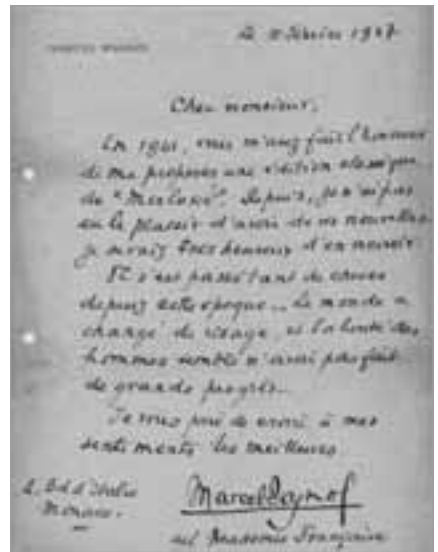 le Février 1947
Cher monsieur,
En 1941, vous m'avez fait l'honneur
de me proposer une édition classique
de "Merlusse". Depuis, je n'ai pas
eu le plaisir d'avoir de vos nouvelles
je serais très heureux d'en avoir.
Il s'est passé tant de choses
depuis cette époque... Le monde a
changé de visage, et la bonté des
hommes semble n'avoir pas fait
de grands progrès...
Je vous prie de croire à mes
sentiments les meilleurs
Bd d'Italie
Monaco.
Marcel Pagnol
de l'Académie Française